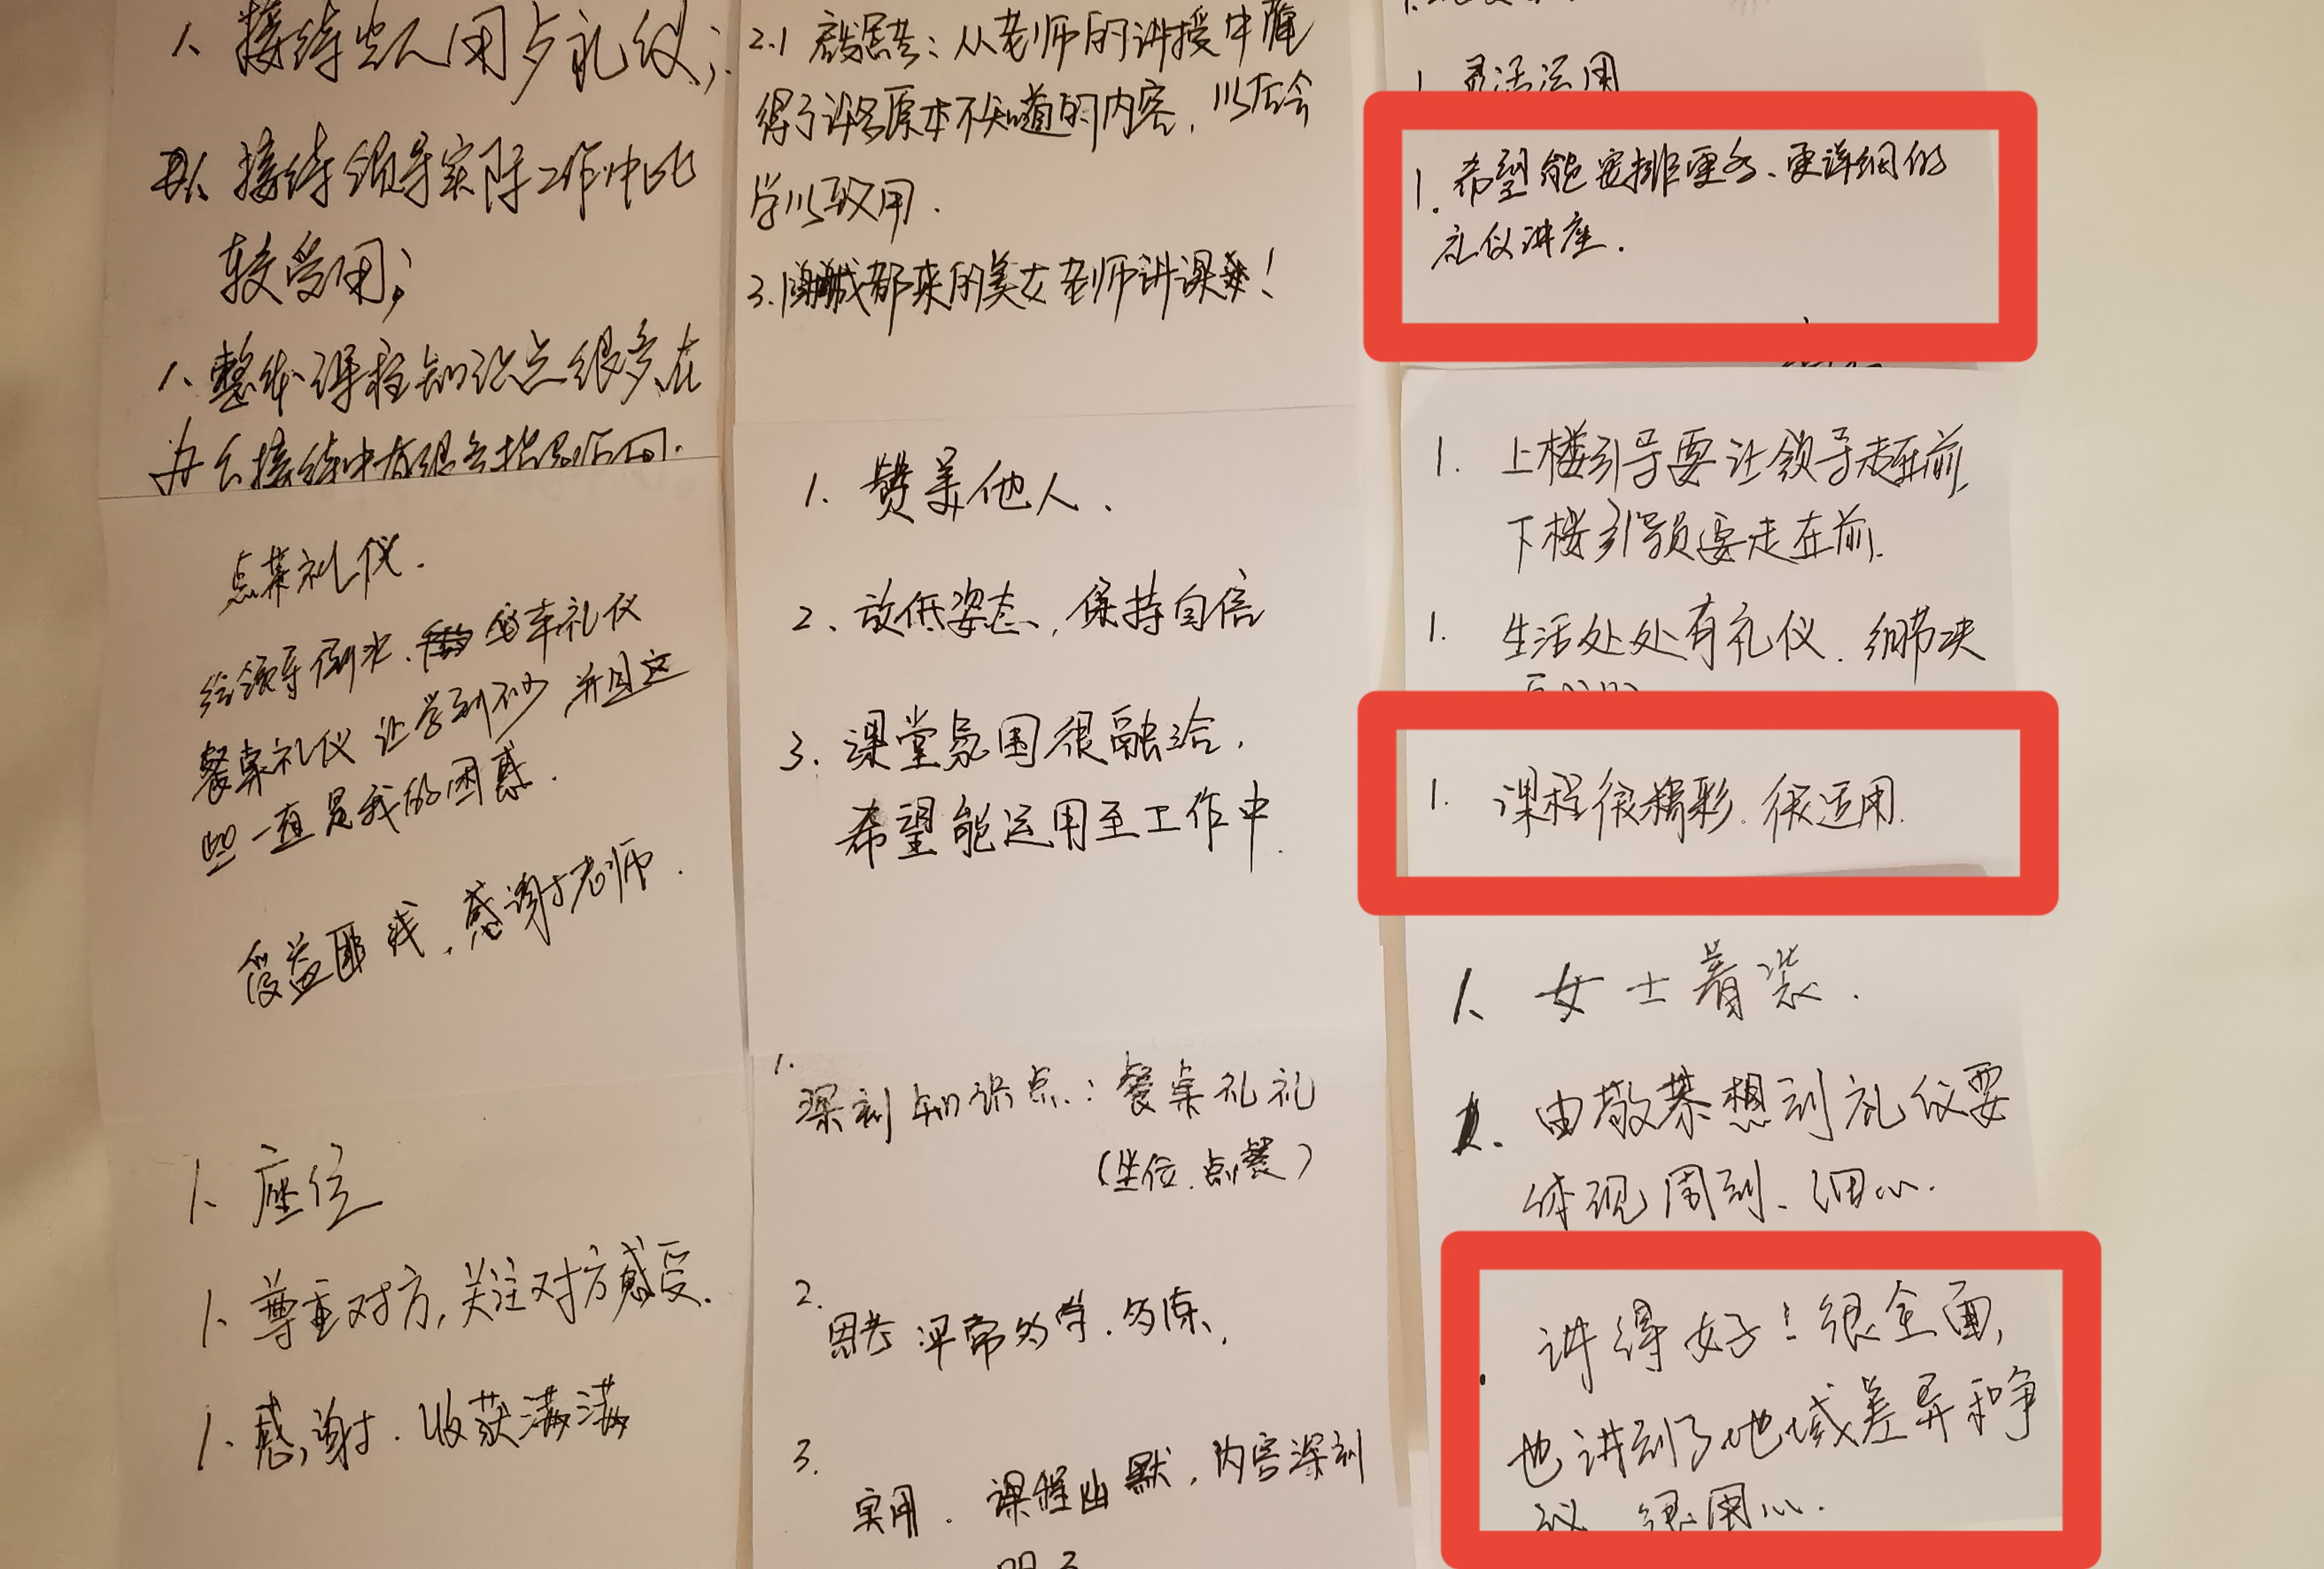 1、接待
1、接待领导实际工作中比
较受用；
1、整体课程知识点很多，在
办公接待中有很多
点菜礼仪.
给领导倒水、坐车礼仪
餐桌礼仪 让学到不少 并且这
些一直是我的困惑.
受益匪浅，感谢老师.
1、座位
1、尊重对方，关注对方感受.
1、感谢. 收获满满
2.1 启发思考：从老师的讲授中
得了许多原本不知道的内容，以后会
学以致用.
3. 都来的美女老师讲课!
1、赞美他人、
2、放低姿态，保持自信
3、课堂氛围很融洽，
希望能运用至工作中.
1.
深刻知识点：餐桌礼礼
（坐位、点餐）
2.
思考 平常多学、多练，
3.
实用. 课程幽默，内容深刻
1 灵活运用
1. 希望能安排更多、更详细的
礼仪讲座.
1. 上楼引导要让领导走在前，
下楼引领要走在前.
1. 生活处处有礼仪. 细节决
1. 课程很精彩. 很适用.
1、女士着装.
1. 由敬茶想到礼仪要
体现周到、细心.
讲得好！很全面，
也讲到了地域差异和争
议 很用心.